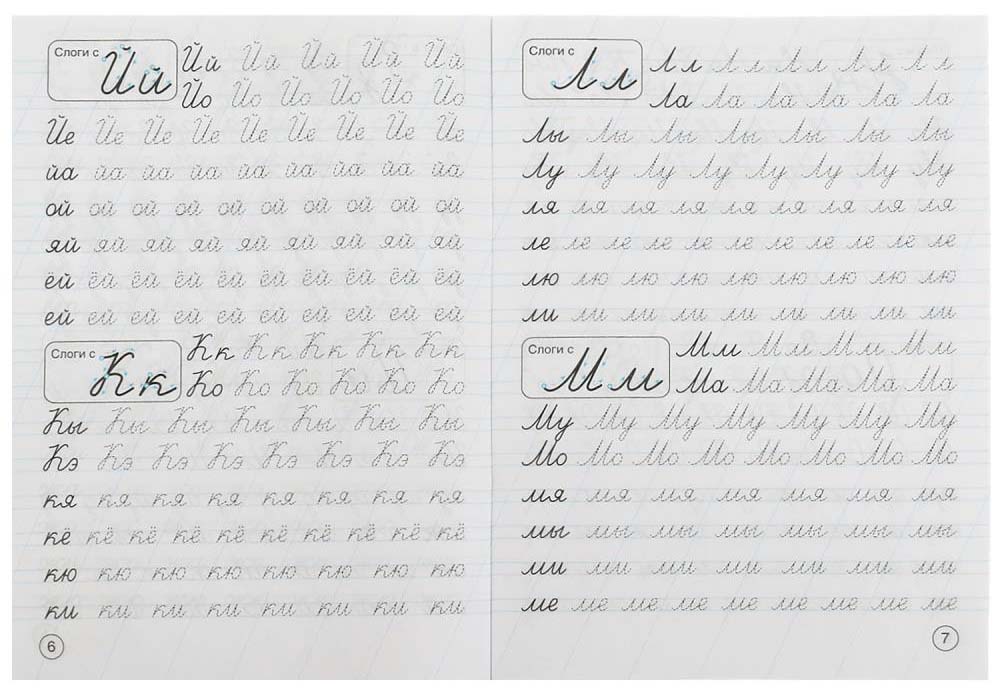 Слоги с Йй
Йй Йй Йй Йй Йй
Йо Йо Йо Йо Йо Йо
Йе Йе Йе Йе Йе Йе Йе Йе Йе
йа йа йа йа йа йа йа йа йа
ой ой ой ой ой ой ой ой ой ой
яй яй яй яй яй яй яй яй яй
ёй ёй ёй ёй ёй ёй ёй ёй ёй ёй
ей ей ей ей ей ей ей ей ей ей
Слоги с Кк
Кк Кк Кк Кк Кк
Ко Ко Ко Ко Ко Ко
Кы Кы Кы Кы Кы Кы Кы
Кэ Кэ Кэ Кэ Кэ Кэ Кэ Кэ
кя кя кя кя кя кя кя кя
кё кё кё кё кё кё кё кё кё кё
кю кю кю кю кю кю кю кю
ки ки ки ки ки ки ки ки
6
Слоги с Лл
Лл Лл Лл Лл Лл
Ла Ла Ла Ла Ла Ла
Лы Лы Лы Лы Лы Лы Лы
Лу Лу Лу Лу Лу Лу Лу Лу
ля ля ля ля ля ля ля ля ля
ле ле ле ле ле ле ле ле ле ле ле
лю лю лю лю лю лю лю лю лю
ли ли ли ли ли ли ли ли ли
Слоги с Мм
Мм Мм Мм Мм
Ма Ма Ма Ма Ма
Му Му Му Му Му Му Му
Мо Мо Мо Мо Мо Мо Мо Мо
мя мя мя мя мя мя мя
мы мы мы мы мы мы мы
ми ми ми ми ми ми ми
ме ме ме ме ме ме ме ме ме
7